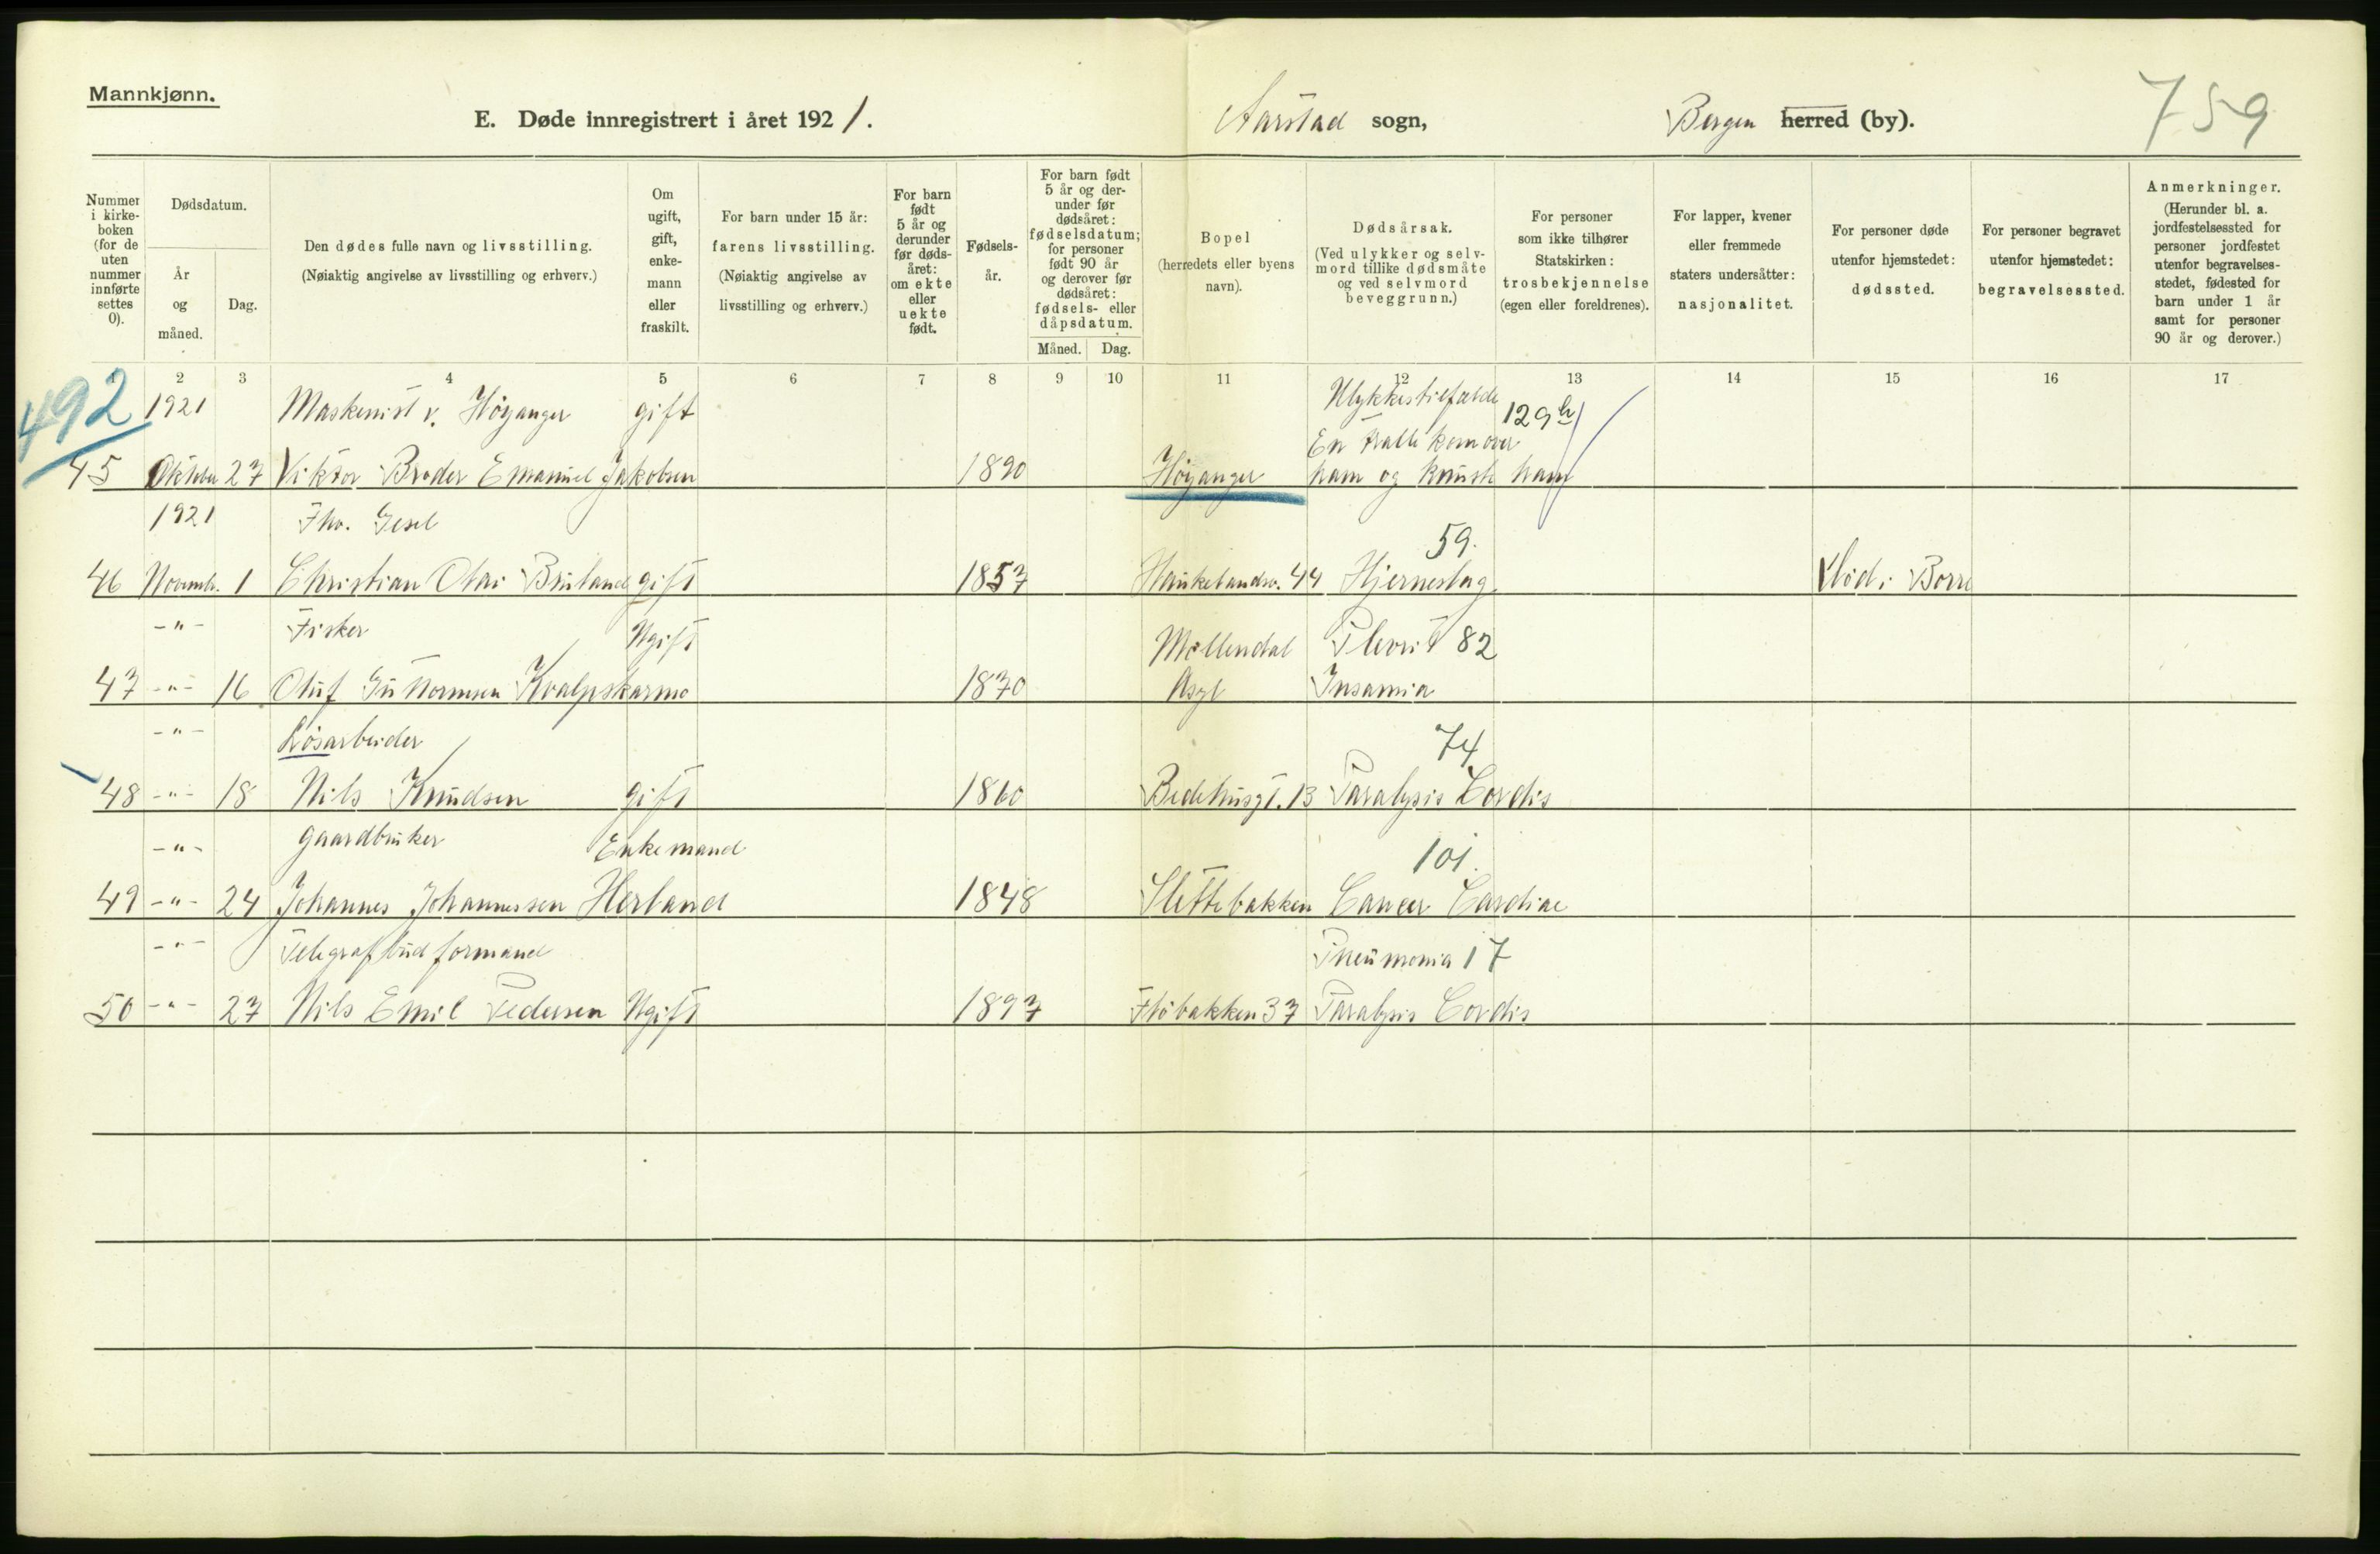 Mannkjønn.
E. Døde innregistrert i året 1921.
Aarstad sogn,
Bergen herred (by).
759
Nummer i kirke-boken (for de uten nummer innførte settes 0).
Dødsdatum.
År og måned.
Dag.
Den dødes fulle navn og livsstilling.
(Nøiaktig angivelse av livsstilling og erhverv.)
Om ugift, gift, enke-mann eller fraskilt.
For barn under 15 år: farens livsstilling.
(Nøiaktig angivelse av livsstilling og erhverv.)
For barn født 5 år og derunder før døds-året: om ekte eller uekte født.
Fødsels-år.
For barn født 5 år og der-under før dødsåret: fødselsdatum; for personer født 90 år og derover før dødsåret: fødsels- eller dåpsdatum.
Måned. Dag.
Bopel (herredets eller byens navn).
Dødsårsak.
(Ved ulykker og selv-mord tillike dødsmåte og ved selvmord beveggrunn.)
For personer som ikke tilhører Statskirken: trosbekjennelse (egen eller foreldrenes).
For lapper, kvener eller fremmede staters undersåtter: nasjonalitet.
For personer døde utenfor hjemstedet: dødssted.
For personer begravet utenfor hjemstedet: begravelsessted.
Anmerkninger.
(Herunder bl. a. jordfestelsessted for personer jordfestet utenfor begravelses-stedet, fødested for barn under 1 år samt for personer 90 år og derover.)
1 2 3 4 5 6 7 8 9 10 11 12 13 14 15 16 17
492
1921 Maskenist v. Höyanger gift Ulykkestilfælde 129
En tralle kom over
45 Oktober 27 Viktor Broder Emanuel Jakobsen 1890 Höyanger ham og knuste ham
1921 Fhv. Gesel 59.
46 Novemb. 1 Christian Olai Bruland gift 1857 Haukelandsv. 44 Hjerneslag Död i Borre
-"- Fisker Ugift Möllendal Plevrit 82
47 -"- 16 Oluf Guttormsen Kvalpskarmo 1870 Asyl Insania
-"- Lösarbeider 74
48 -"- 18 Nils Knudsen gift 1860 Bedehusgt. 13 Paralysis Cordis
-"- Gaardbruker Enkemand 101.
49 -"- 24 Johannes Johannessen Herland 1848 Slettebakken Cancer Cardiae
-"- Telegrafbudformand Pneumonia 17
50 -"- 27 Nils Emil Pedersen Ugift 1897 Flöbakken 37 Paralysis Cordis